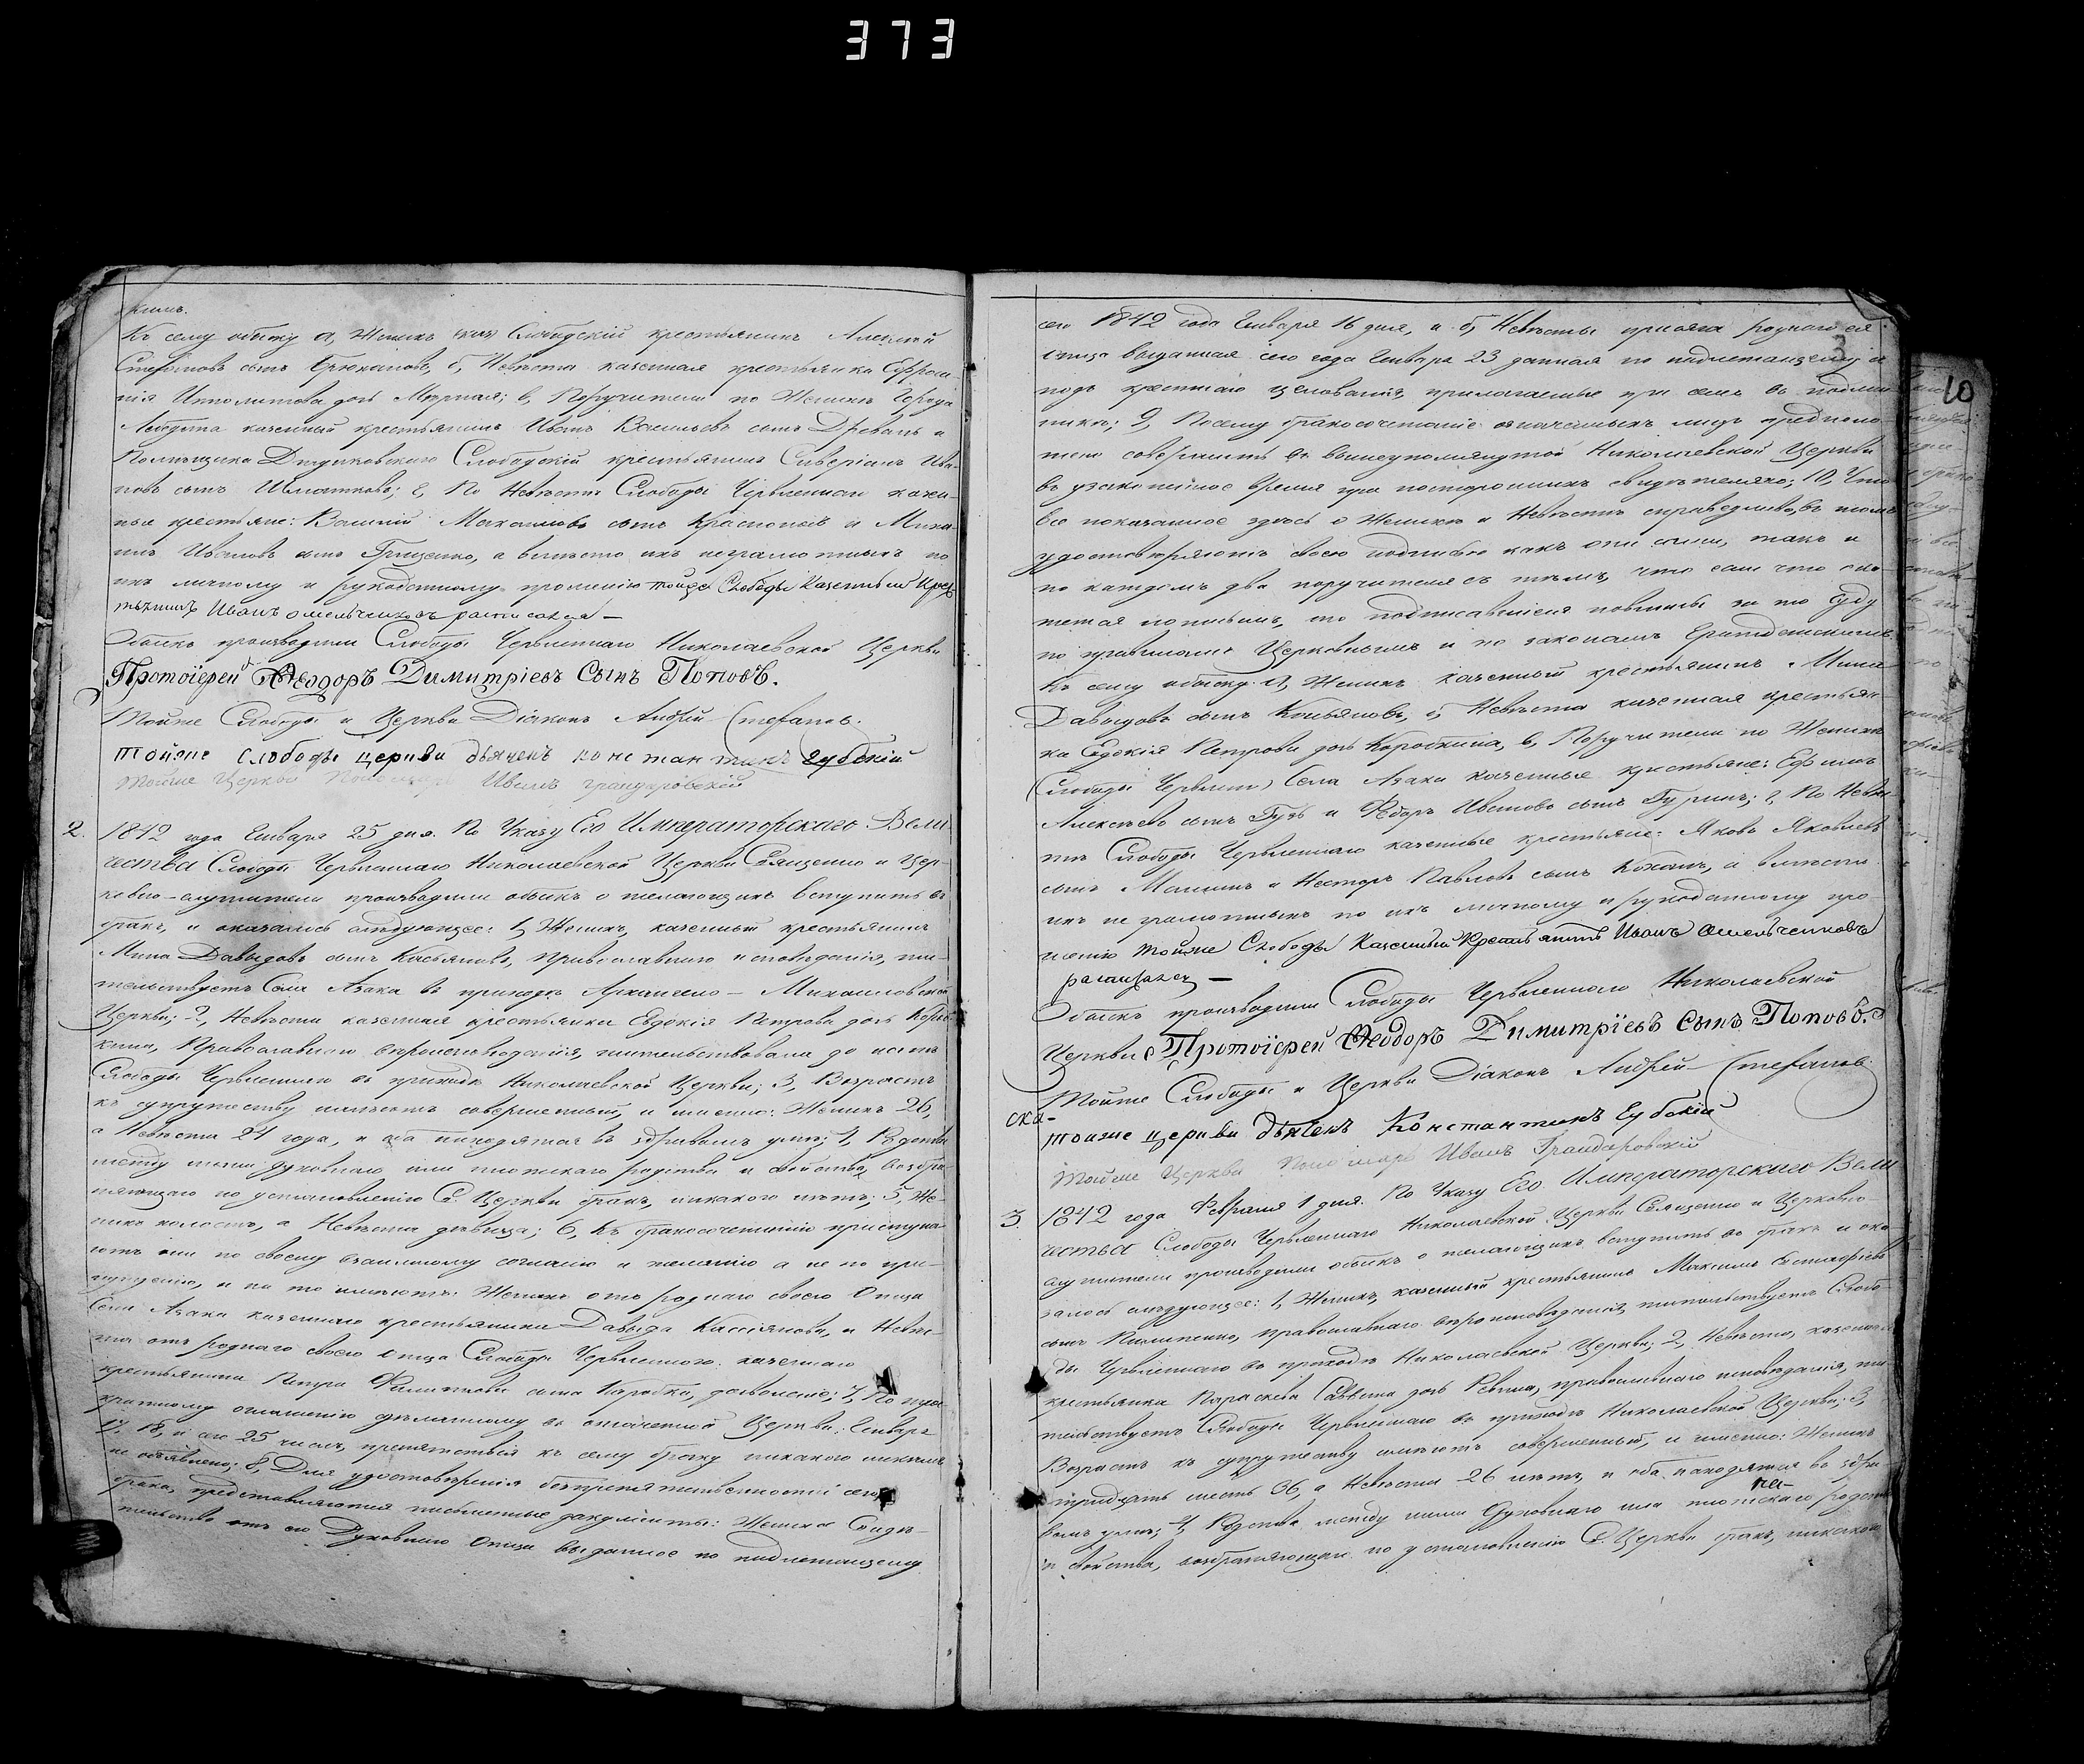 373
скимъ.
Къ сему обыску а, Женихъ Слободскій крестьянинъ Алексѣй
Стефановъ сынъ б, Невѣста казенная крестьянка Ефроси-
нія Ипполитова дочь в, Поручители по Женихѣ Города
Лебедина казенный крестьянинъ Иванъ Васильевъ сынъ Древаль и
Помѣщика Слободскій крестьянинъ Сиверіанъ Ива-
новъ сынъ г, По Невѣстѣ Слободы Червленнаго казен-
ные крестьяне: Василій сынъ и Миха-
илъ Ивановъ сынъ Грищенко, а вмѣсто ихъ неграмотныхъ по
ихъ личному и рукоданному прошенію тойже Слободы Казенный Крес
тьянинъ Иванъ Омельченковъ росписался —
Обыскъ производили Слободы Червленнаго Николаевской Церкви
Протоіерей Ѳеодоръ Димитріевъ Сынъ Поповъ.
Тойже Слободы и Церкви Діаконъ Андрей Стефановъ.
тойже слободы церкви дьячекъ константинъ
Тойже Церкви Пономарь Иванъ
2. 1842 года Января 25 дня. По Указу Его Императорскаго Вели
чества Слободы Червленнаго Николаевской Церкви Священно и Цер-
ковно-служители производили обыскъ о желающихъ вступить въ
бракъ, и оказалось слѣдующее: 1, Женихъ, казенный крестьянинъ
Мина Давыдовъ сынъ Касьяновъ, Православнаго исповѣданія, жи-
тельствуетъ Села Азака въ приходѣ Архангело-Михаиловской
Церкви; 2, Невѣста казенная крестьянка Евдокія Петрова дочь Короб-
кина, Православнаго вѣроисповѣданія, жительствовала до нынѣ
Слободы Червленнаго въ приходѣ Николаевской Церкви; 3, Возрастъ
къ супружеству имѣютъ совершенный, и именно: Женихъ 26,
а Невѣста 21 года, и оба находятся въ здравомъ умѣ; 4, Родства
между ними духовнаго или плотскаго родства и свойства, возбра-
няющаго по установленію С. Церкви бракъ, никакого нѣтъ; 5, Же-
нихъ холостъ, а Невѣста дѣвица; 6, Къ бракосочетанію приступа-
ютъ они по своему взаимному согласію и желанію а не по при-
нужденію, и на то имѣютъ: Женихъ отъ роднаго своего Отца
Села Азака казеннаго крестьянина Давыда Кассіянова, и Невѣс-
та отъ роднаго своего отца Слободы Червленнаго казеннаго
крестьянина Петра сына Коробка, дозволеніе; 7, По трое
кратному оглашенію сдѣланному въ означенной Церкви: Января
17, 18, и сего 25 числъ, препятствія къ сему браку никакого никѣмъ
не объявлено; 8, Для удостовѣренія безпрепятственности сего
брака, представляются письменные документы: Жениха Свидѣ-
тельство отъ его Духовнаго Отца выданное по надлежащему
3
10
сего 1842 года Января 16 дня, и б, Невѣсты присяга роднаго ея
отца выданная сего года Января 23 данная по надлежащему и
подъ крестнаго цѣлованія, прилагаемые при семъ въ подлин
никѣ; 9, Посему бракосочетаніе означенныхъ лицъ предполо-
жено совершить въ вышеупомянутой Николаевской Церкви
въ узаконенное время при постороннихъ свидѣтеляхъ; 10, Что
все показанное здѣсь о Женихѣ и Невѣстѣ справедливо, въ томъ
удостовѣряютъ своею подписью какъ они сами, такъ и
по каждомъ два поручителя съ тѣмъ, что если что ока
жется ложнымъ, то подписавшіеся повинны за то суду
по правиламъ Церковнымъ и по законамъ Гражданскимъ
Къ сему обыску: а, Женихъ казенный крестьянинъ Мина
Давыдовъ сынъ Касьяновъ, б, Невѣста казенная крестьян-
ка Евдокія Петрова дочь Коробкина, в, Поручители по Женихѣ
(Слободы Червлен) Села Азака казенные крестьяне: Ефимъ
Алексѣевъ сынъ Гузь и Ѳедоръ Ивановъ сынъ Гуринъ; г, По Невѣс
тѣ Слободы Червленнаго казенные крестьяне: Яковъ Яковлевъ
сынъ и Несторъ Павловъ сынъ Коханъ, а вмѣсто
ихъ неграмотныхъ по ихъ личному и рукоданному про-
шенію тойже Слободы Казенный Крестьянинъ Иванъ Омельченковъ
росписался —
Обыскъ производили Слободы Червленнаго Николаевской
Церкви: Протоіерей Ѳеодоръ Димитріевъ Сынъ Поповъ.
Тойже Слободы и Церкви Діаконъ Андрей Стефановъ.
тойже церкви дьячекъ Константинъ
Тойже Церкви Пономарь Иванъ
3. 1842 года Февраля 1 дня. По Указу Его Императорскаго Вели
чества Слободы Червленнаго Николаевской Церкви Священно и Церковно-
служители производили обыскъ о желающихъ вступить въ бракъ и ока
залось слѣдующее: 1, Женихъ, казенный крестьянинъ Максимъ Евстафіевъ
сынъ Пилипенко, православнаго вѣроисповѣданія, жительствуетъ Слобо-
ды Червленнаго въ приходѣ Николаевской Церкви; 2, Невѣста, казенная
крестьянка Параскева Саввина дочь Ревина, православнаго исповѣданія, жи
тельствуетъ Слободы Червленнаго въ приходѣ Николаевской Церкви; 3,
Возрастъ къ супружеству имѣютъ совершенный, и именно: Женихъ
тридцать шесть 36, а Невѣста 26 лѣтъ, и оба находятся въ здра
вомъ умѣ; 4, Родства между ними Духовнаго или плотскаго родства
и свойства, возбраняющаго по установленію С. Церкви бракъ, никакого